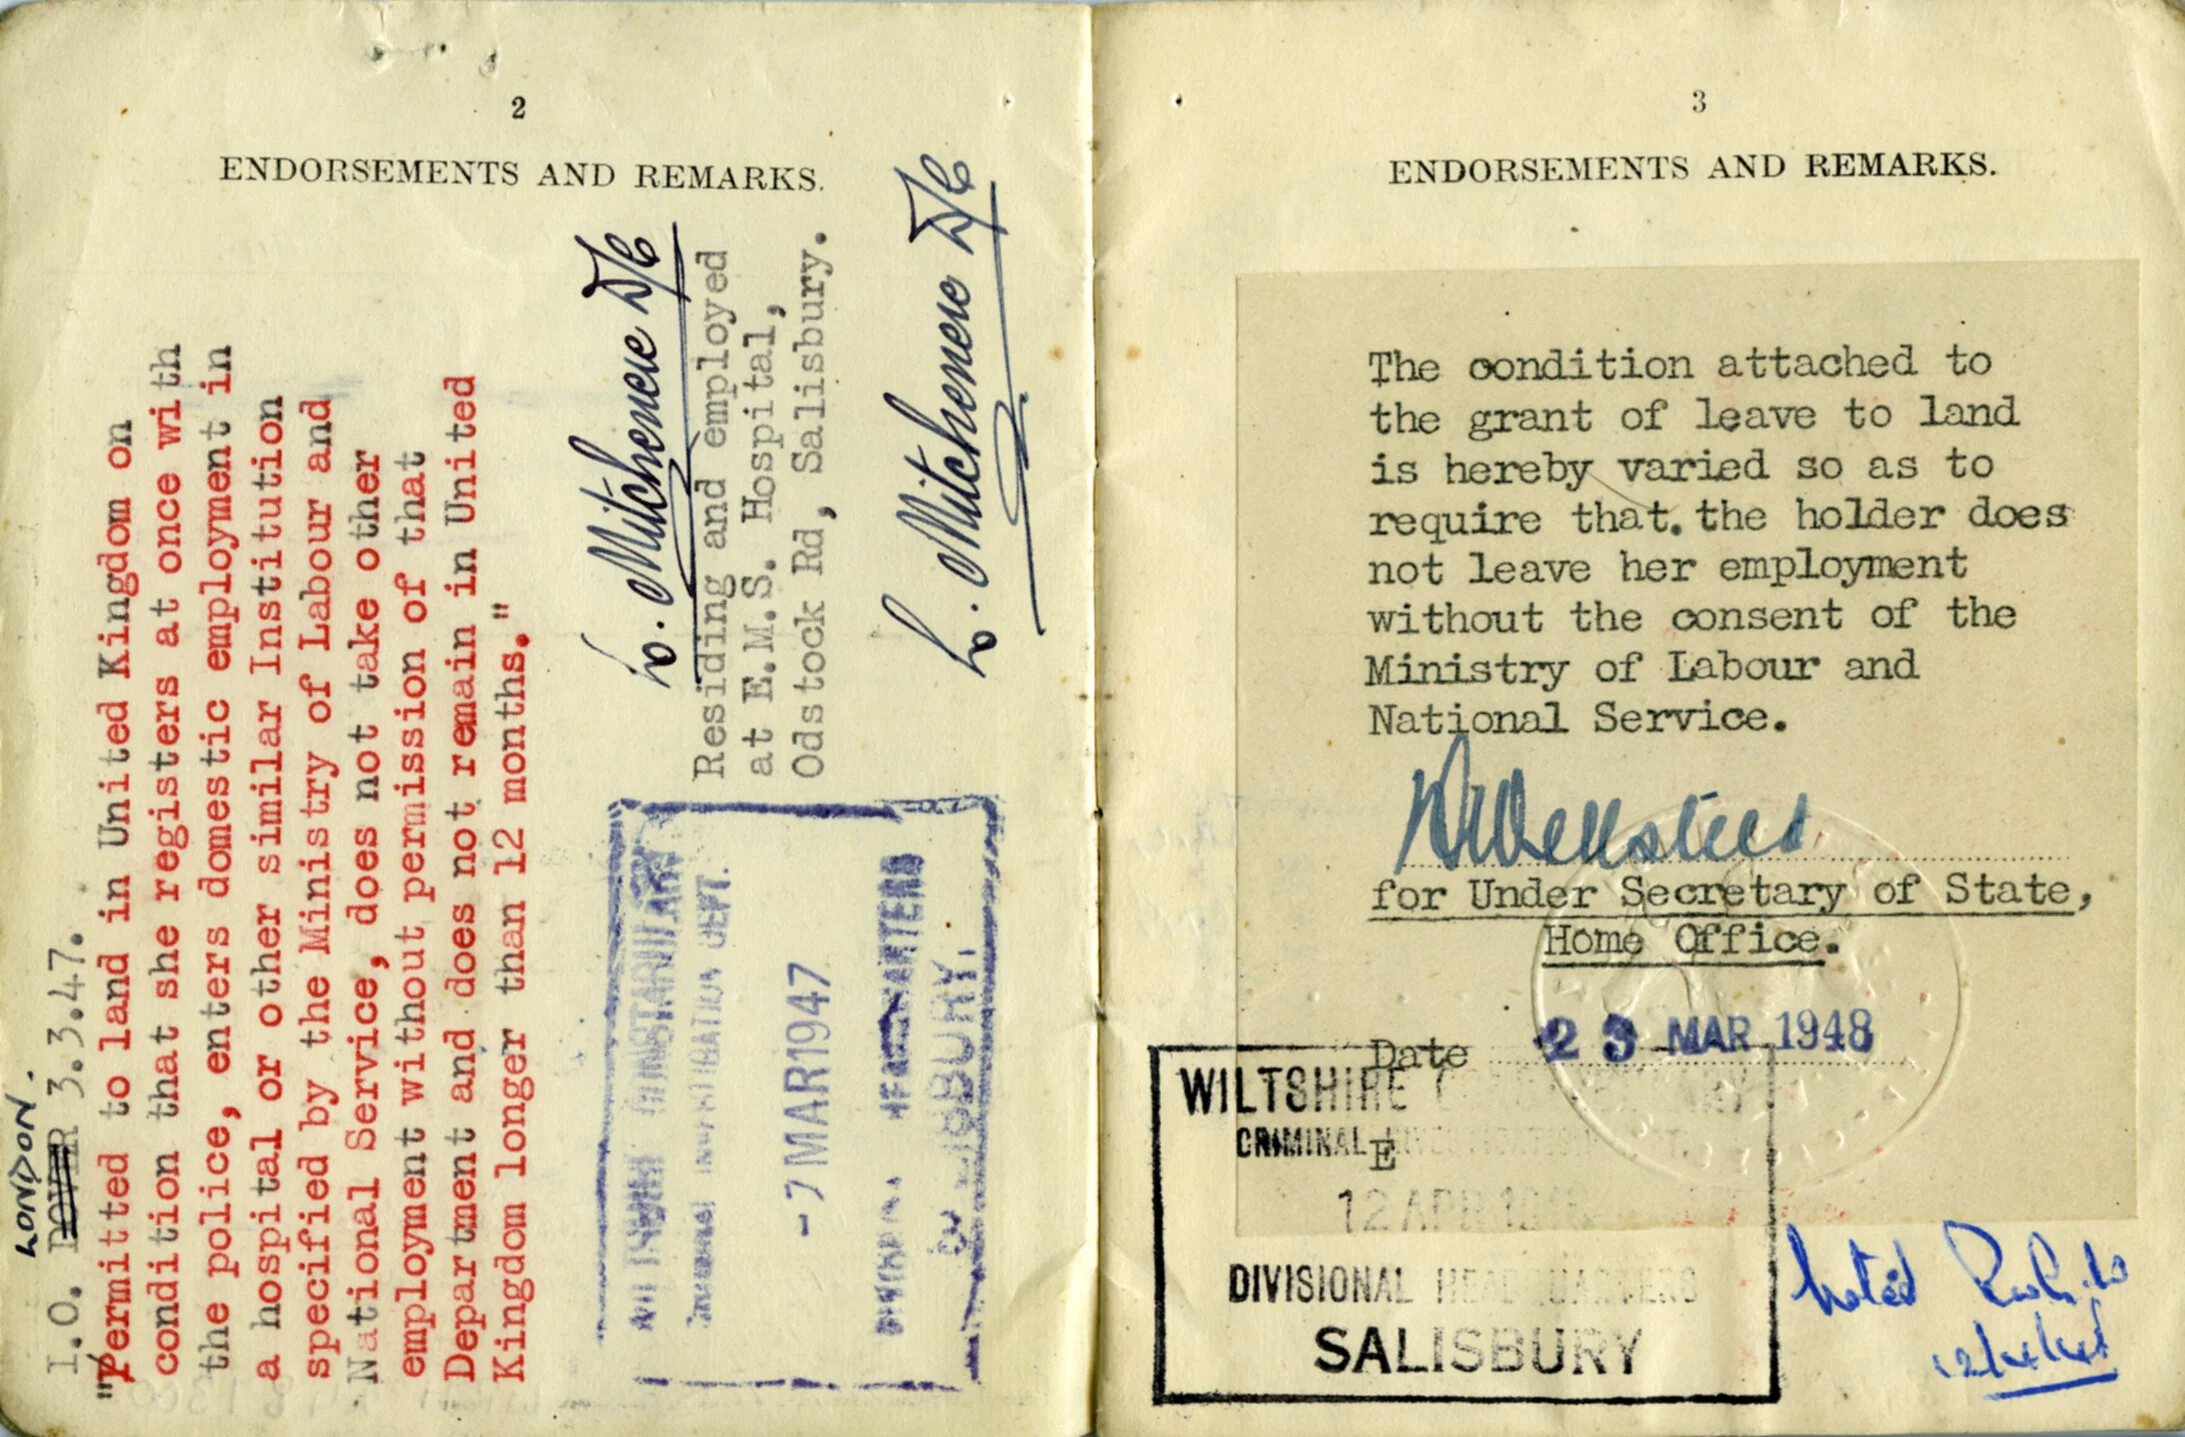 2
ENDORSEMENTS AND REMARKS.
LONDON.
I.O. DOVER 3.3.47.
"Permitted to land in United Kingdom on
condition that she registers at once with
the police, enters domestic employment in
a hospital or other similar Institution
specified by the Ministry of Labour and
National Service, does not take other
employment without permission of that
Department and does not remain in United
Kingdom longer than 12 months."
L. Mitchener D/C
Residing and employed
at E.M.S. Hospital,
Odstock Rd, Salisbury.
L. Mitchener D/C
WILTSHIRE CONSTABULARY
CRIMINAL INVESTIGATION DEPT.
-7 MAR 1947
DIVISIONAL HEADQUARTERS
SALISBURY.
3
ENDORSEMENTS AND REMARKS.
The condition attached to
the grant of leave to land
is hereby varied so as to
require that. the holder does
not leave her employment
without the consent of the
Ministry of Labour and
National Service.
for Under Secretary of State,
Home Office.
Date 23 MAR 1948
WILTSHIRE CONSTABULARY
CRIMINAL INVESTIGATION DEPT.
E
12 APR 194
DIVISIONAL HEADQUARTERS
SALISBURY
noted
12/4/48